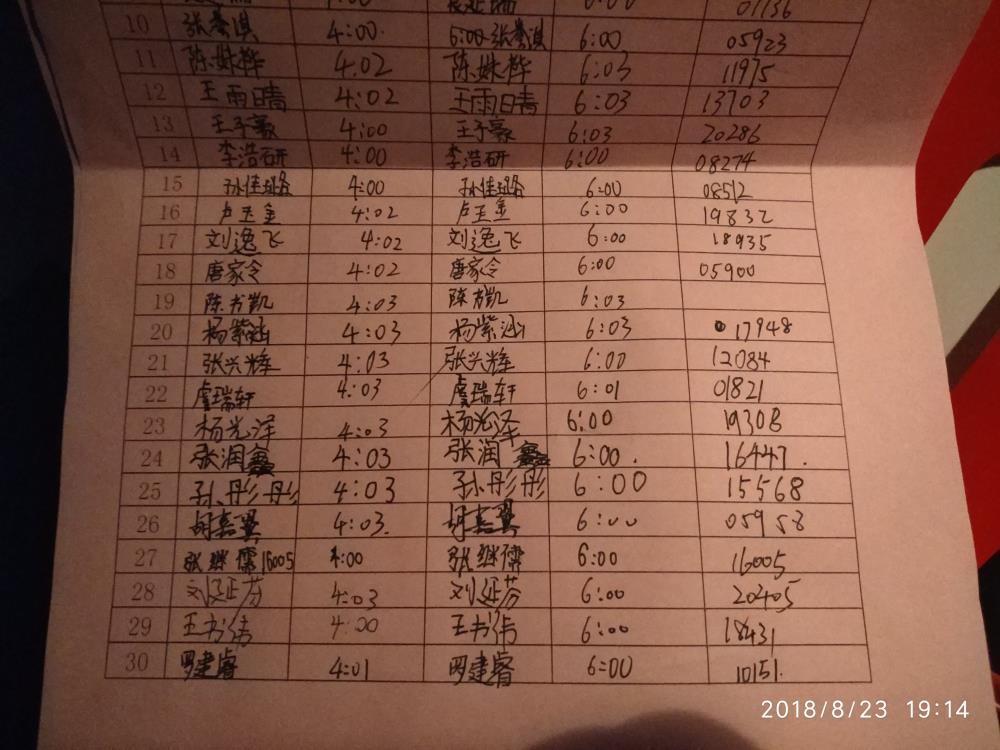 01136
10 张 淇 4:00 6:00 张 淇 6:00 05923
11 陈姝桦 4:02 陈姝桦 6:03 11975
12 王雨晴 4:02 王雨晴 6:03 13703
13 王子豪 4:00 王子豪 6:03 20286
14 李浩研 4:00 李浩研 6:00 08274
15 孙佳璐 4:00 孙佳璐 6:00 08512
16 卢玉金 4:02 卢玉金 6:00 19832
17 刘逸飞 4:02 刘逸飞 6:00 18935
18 唐家令 4:02 唐家令 6:00 05900
19 陈书凯 4:03 陈书凯 6:03
20 杨紫涵 4:03 杨紫涵 6:03 17948
21 张兴烽 4:03 张兴烽 6:00 12084
22 虞瑞轩 4:03 虞瑞轩 6:01 01821
23 杨光泽 4:03 杨光泽 6:00 19308
24 张润鑫 4:03 张润鑫 6:00. 16447.
25 孙彤彤 4:03 孙彤彤 6:00 15568
26 胡嘉翼 4:03. 胡嘉翼 6:00 05958
27 张继儒16005 4:00 张继儒 6:00 16005
28 刘延芬 4:03 刘延芬 6:00 20405
29 王书伟 4:00 王书伟 6:00 18431
30 罗建睿 4:01 罗建睿 6:00 10151.
2018/8/23 19:14